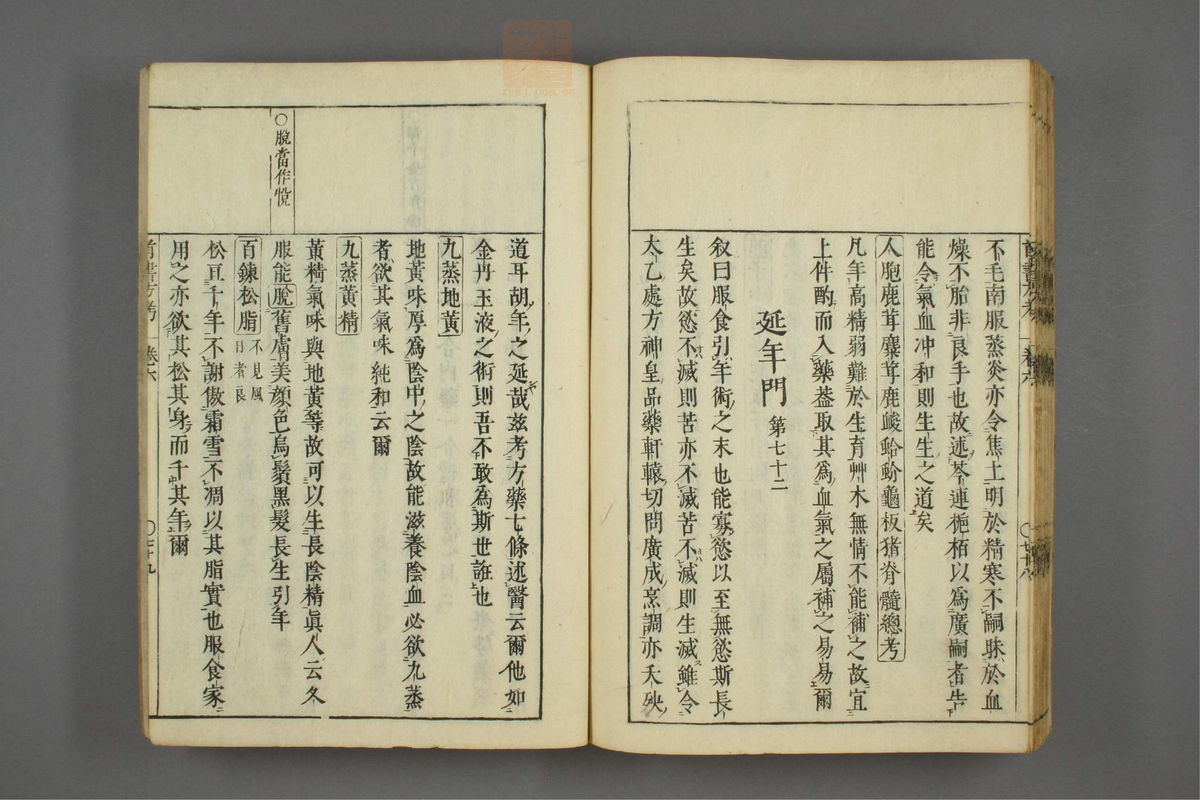 不毛南服蒸炎亦令焦土明於精寒不嗣昧於血
燥不胎非良手也故述芩連梔栢以為廣嗣者告
能令氣血冲和則生生之道矣
人胞鹿茸麋茸鹿峻蛤蚧龜板猪脊髓總考
凡年高精弱難於生育艸木無情不能補之故宜
上件酌而入藥葢取其為血氣之屬補之易易爾
延年門 第七十二
叙曰服食引年術之末也能寡慾以至無慾斯長
生矣故慾不滅則苦亦不滅苦不滅則生滅雖令
太乙處方神皇品藥軒轅切問廣成烹調亦夭殃
道耳胡年之延哉茲考方藥七條述醫云爾他如
金丹玉液之術則吾不敢為斯世誑也
九蒸地黃
地黃味厚為陰中之陰故能滋養陰血必欲九蒸
者欲其氣味純和云爾
九蒸黃精
黃精氣味與地黃等故可以生長陰精真人云久
服能脫舊膚美顏色烏鬚黑髮長生引年
○脫當作悅
百鍊松脂 不見風
日者良
松亙千年不謝傲霜雪不凋以其脂實也服食家
用之亦欲其松其身而千其年爾
卷六
○七十九